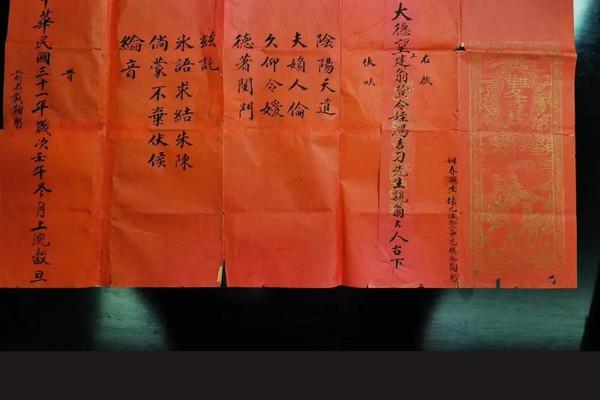 右啟
上
大德望建翁暨令姪鴻吉刁先生親翁大人台下
伏以
陰陽天道
夫婦人倫
久仰令媛
德著閨門
茲託
氷語求結朱陳
倘蒙不棄伏候
綸音
華民國三十一年歲次壬午叁月上浣穀旦